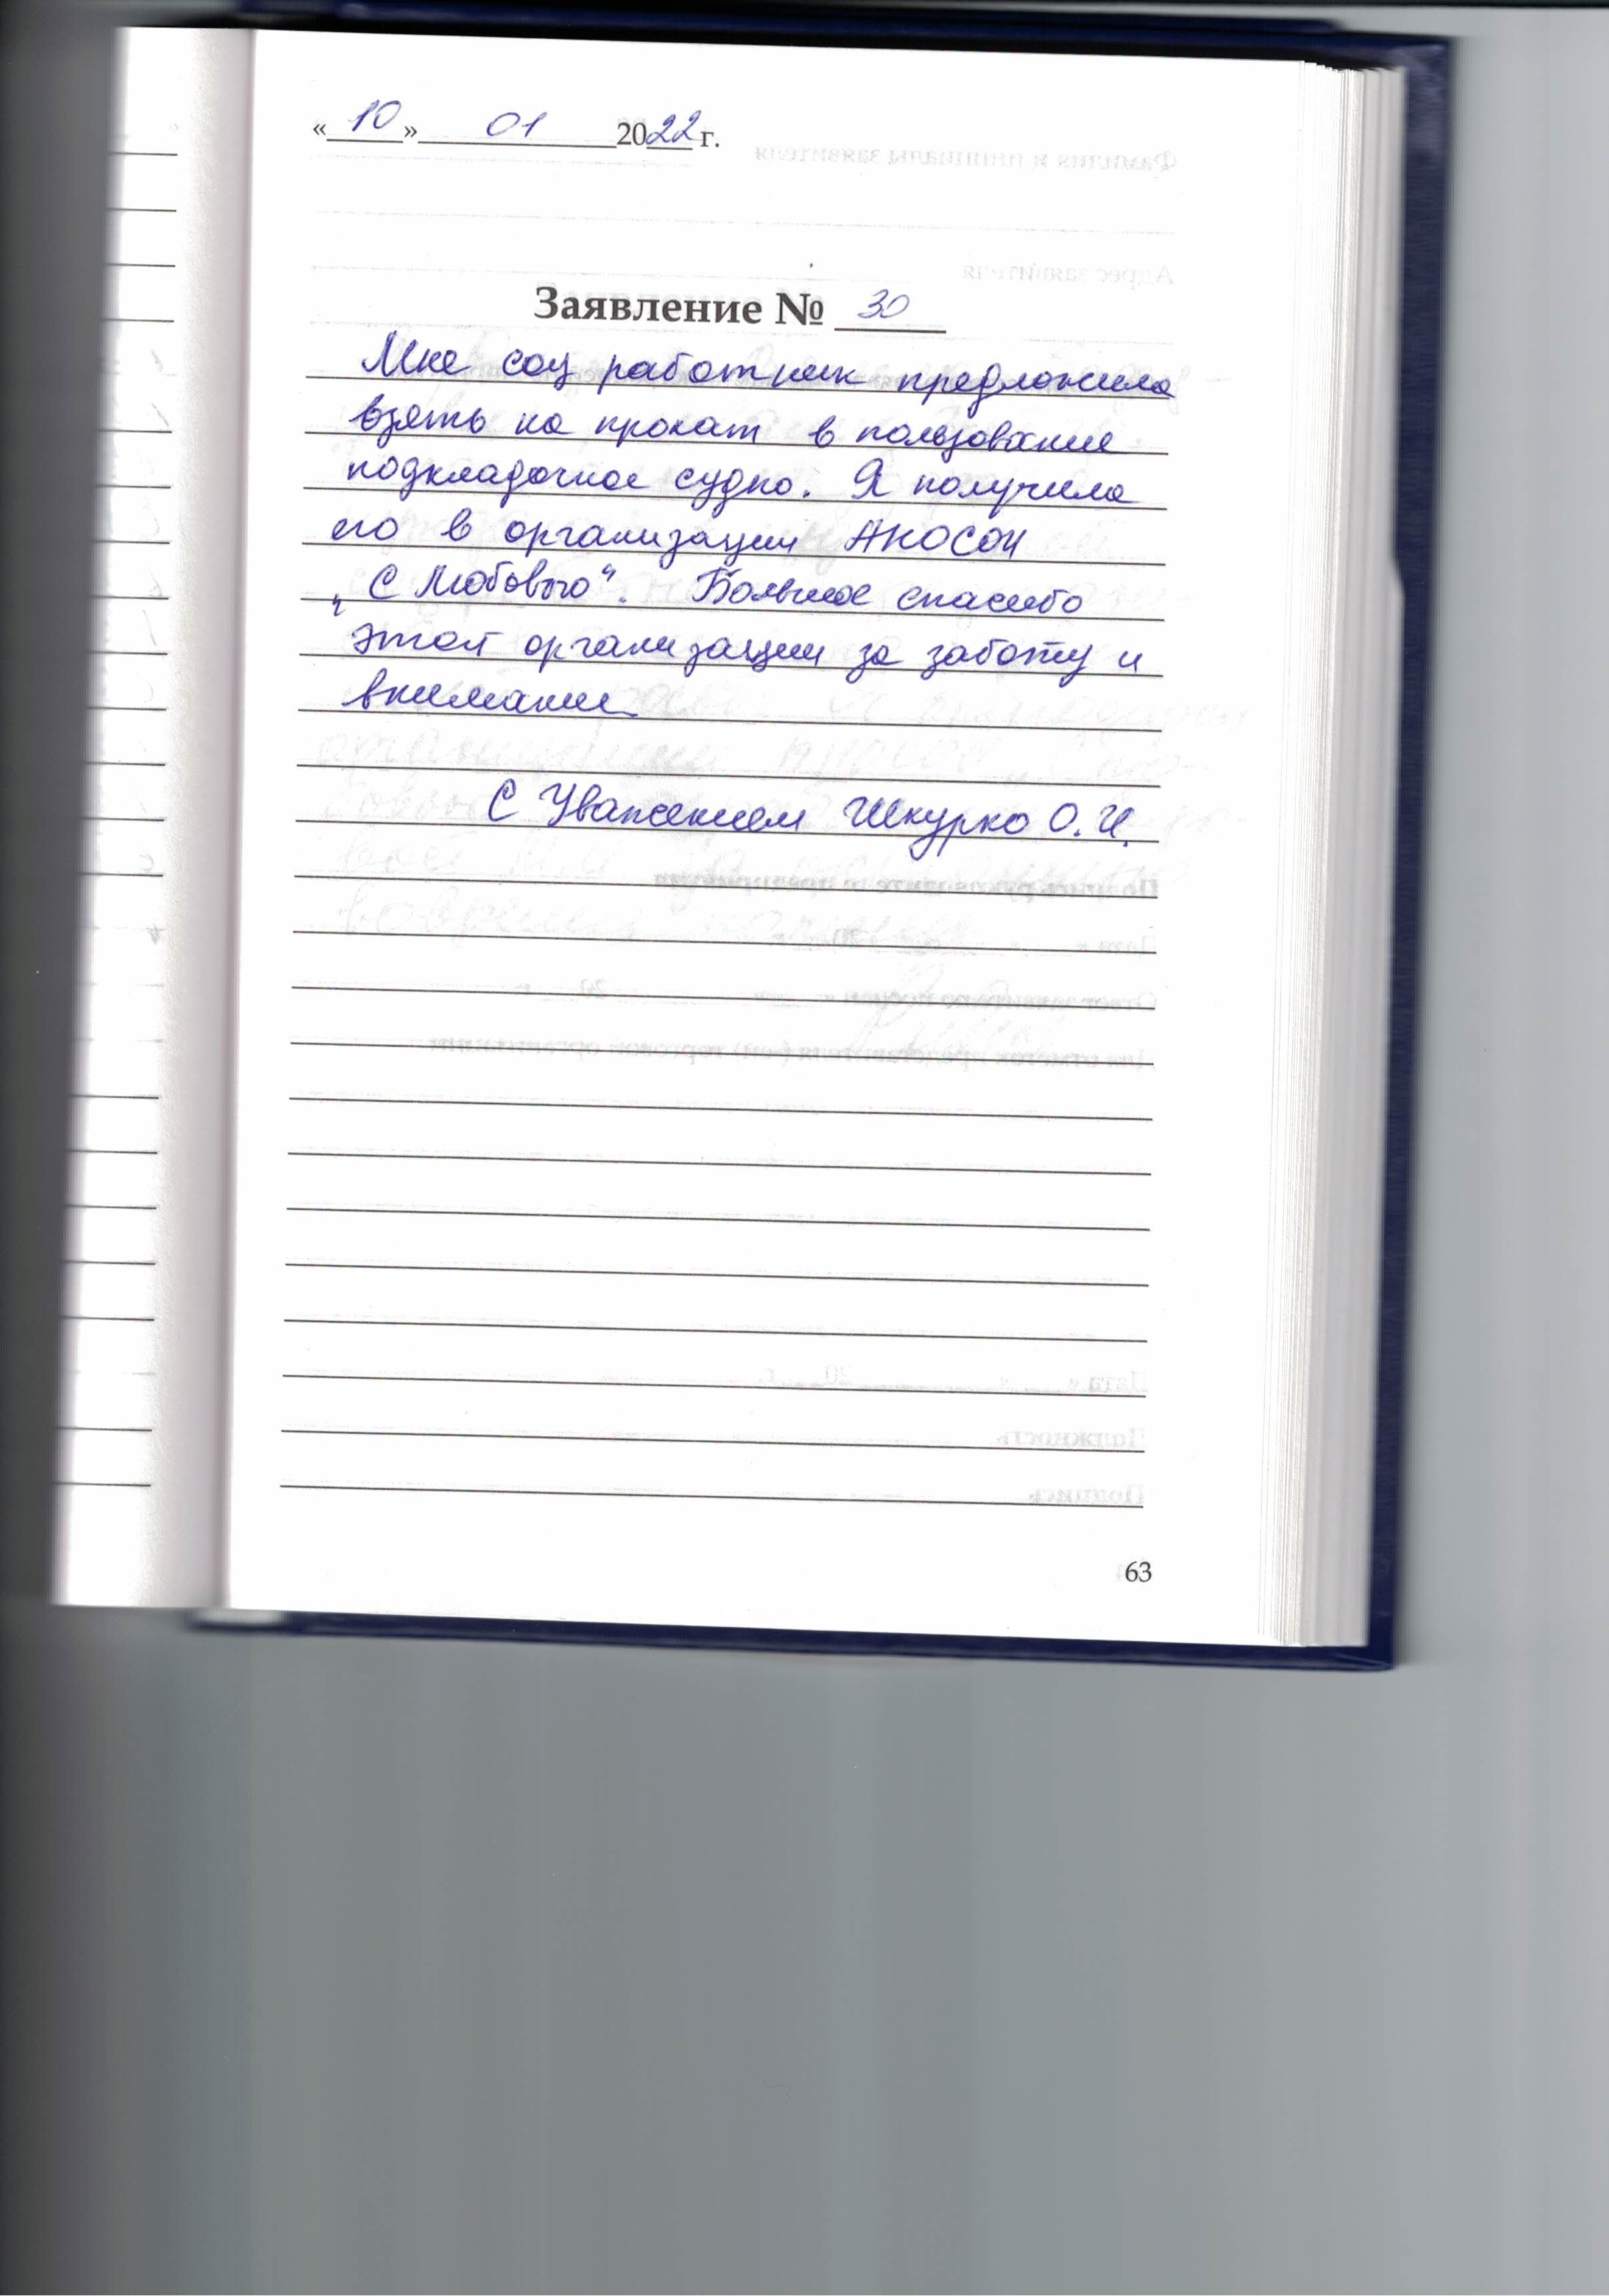 « 10 » 01 2022 г.
Заявление № 30
Мне соц работник предложила
взять на прокат в пользование
подкладочное судно. Я получила
его в организации АНОСОН
„С Любовью“. Большое спасибо
этой организации за заботу и
внимание
С Уважением Шкурко О.И.
63